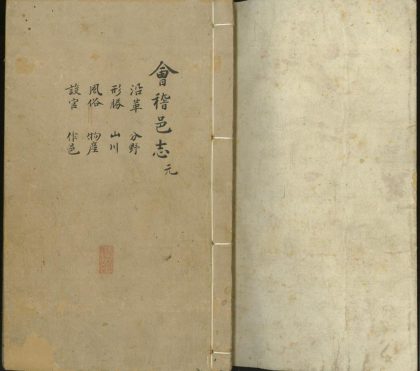 會稽邑志元
沿革 分野
形勝 山川
風俗 物產
設官 作邑